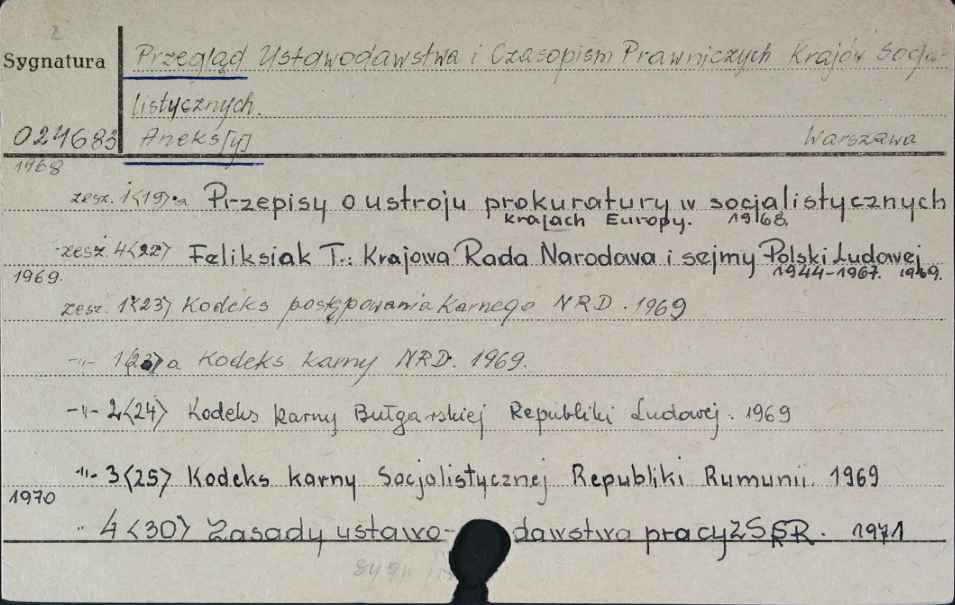 2
Sygnatura Przegląd Ustawodawstwa i Czasopism Prawniczych Krajów Socja-
listycznych.
024683 Aneks[y] Warszawa
1968
zesz. 1<19>a Przepisy o ustroju prokuratury w socjalistycznych
krajach Europy. 1968.
zesz. 4<22> Feliksiak T.: Krajowa Rada Narodowa i sejmy Polski Ludowej
1944-1967. 1969.
1969.
zesz. 1<23> Kodeks postępowania karnego NRD. 1969
-"- 1<23>a Kodeks karny NRD. 1969.
-"- 2<24> Kodeks karny Bułgarskiej Republiki Ludowej. 1969
-"- 3<25> Kodeks karny Socjalistycznej Republiki Rumunii. 1969
1970
" 4<30> Zasady ustawo-dawstwa pracy ZSRR. 1971